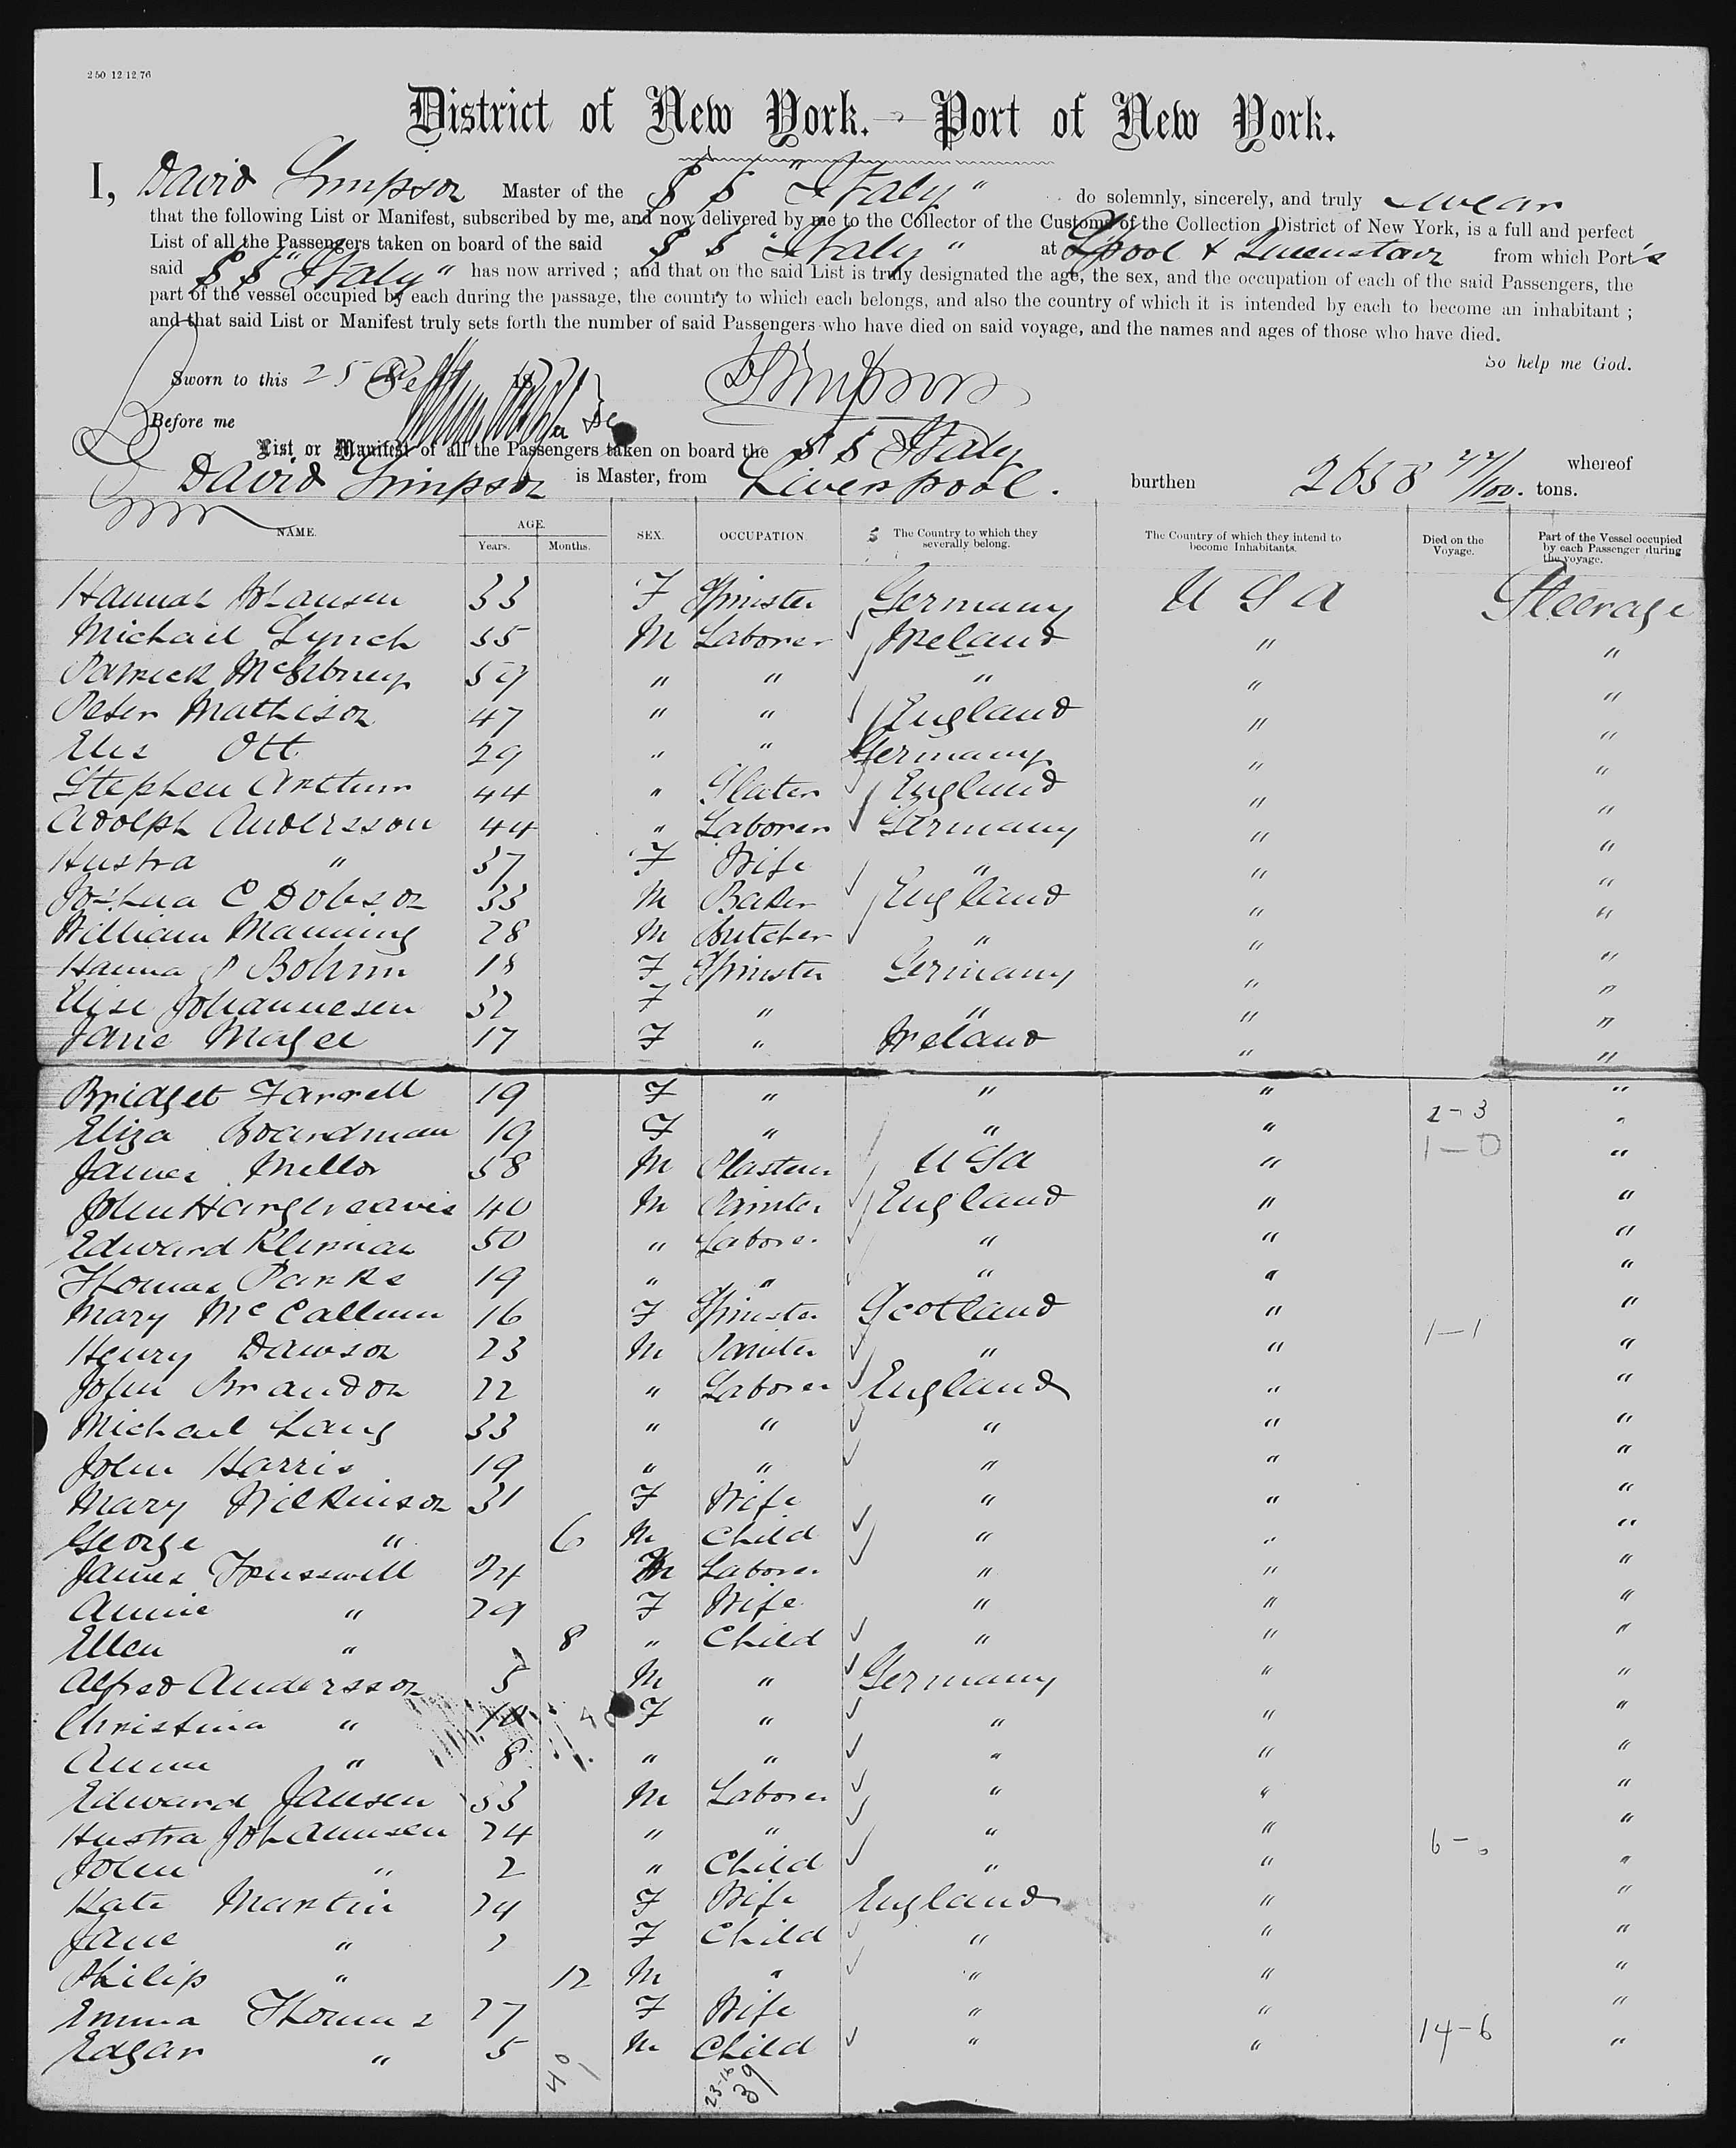 250 12 12 76
District of New York. - Port of New York.
I, David Simpson Master of the S S "Italy" do solemnly, sincerely, and truly swear
that the following List or Manifest, subscribed by me, and now delivered by me to the Collector of the Customs of the Collection District of New York, is a full and perfect
List of all the Passengers taken on board of the said S S "Italy" at Lpool & Queenstown from which Port's
said S S "Italy" has now arrived ; and that on the said List is truly designated the age, the sex, and the occupation of each of the said Passengers, the
part of the vessel occupied by each during the passage, the country to which each belongs, and also the country of which it is intended by each to become an inhabitant ;
and that said List or Manifest truly sets forth the number of said Passengers who have died on said voyage, and the names and ages of those who have died.
So help me God.
Sworn to this 25 18 DSimpson
Before me
List or Manifest of all the Passengers taken on board the S S Italy whereof
David Simpson is Master, from Liverpool. burthen tons.
NAME. AGE. SEX. OCCUPATION. The Country to which they severally belong. The Country of which they intend to become Inhabitants. Died on the Voyage. Part of the Vessel occupied by each Passenger during the voyage.
Years. Months.
Hannah Johansen 33 F Spinster Germany U S A Steerage
Michael Lynch 35 M Laborer Ireland " "
Patrick 59 " " " " "
Peter Mathison 47 " " England " "
Ott 29 " " Germany " "
Stephen 44 " Slater England " "
Adolph Andersson 44 " Laborer Germany " "
Hustra " 37 F Wife " " "
Joshua C Dobson 33 M Baker England " "
William Manning 28 M Butcher " " "
Hanna P Bohrm 18 F Spinster Germany " "
Elise Johannesen 32 F " " " "
Jane Magee 17 F " Ireland " "
Bridget Farrell 19 F " " " "
Eliza Boardman 19 F " " " 2-3 "
James Mellor 58 M Plasterer U S A " 1-0 "
John Hargreaves 40 M Painter England " "
Edward 50 " Laborer " " "
Thomas Parks 19 " " " " "
Mary McCallum 16 F Spinster Scotland " "
Henry Dawson 23 M Painter " " 1-1 "
John Brandon 22 " Laborer England " "
Michael Lang 33 " " " " "
John Harris 19 " " " " "
Mary Wilkinson 31 F Wife " " "
George " 6 M Child " " "
James Trusswell 24 M Laborer " " "
Annie " 29 F Wife " " "
Ellen " 8 " Child " " "
Alfred Andersson 5 M " Germany " "
Christina " F " " " "
Anna " 8 " " " " "
Edward Jansen 33 M Laborer " " "
Hustra Johannsen 24 " " " " "
John " 2 " Child " " 6- "
Kate Martin 24 F Wife England " "
Jane " 2 F Child " " "
Philip " 12 M " " " "
Emma Thomas 27 F Wife " " "
Edgar " 5 M Child " " 14-6 "
40 23-16 39